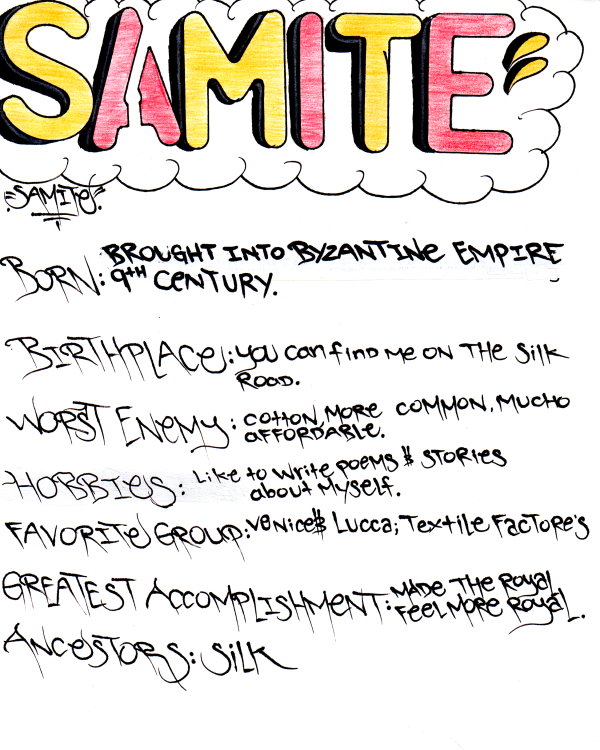 SAMITE
"SAMITE".
BORN: BROUGHT INTO BYZANTINE EMPIRE
9TH CENTURY.
BIRTHPLACE: you can find me on THE Silk
ROAD.
WORST ENEMY: COTTON, MORE COMMON, MUCHO
AFFORDABLE.
HOBBIES: Like to write poems & STORIES
about Myself.
FAVORITE GROUP: VENICE & LUCCA; TEXTILE FACTORE'S
GREATEST ACCOMPLISHMENT: MADE THE ROYAL
FEEL MORE ROYAL.
ANCESTORS: SILK